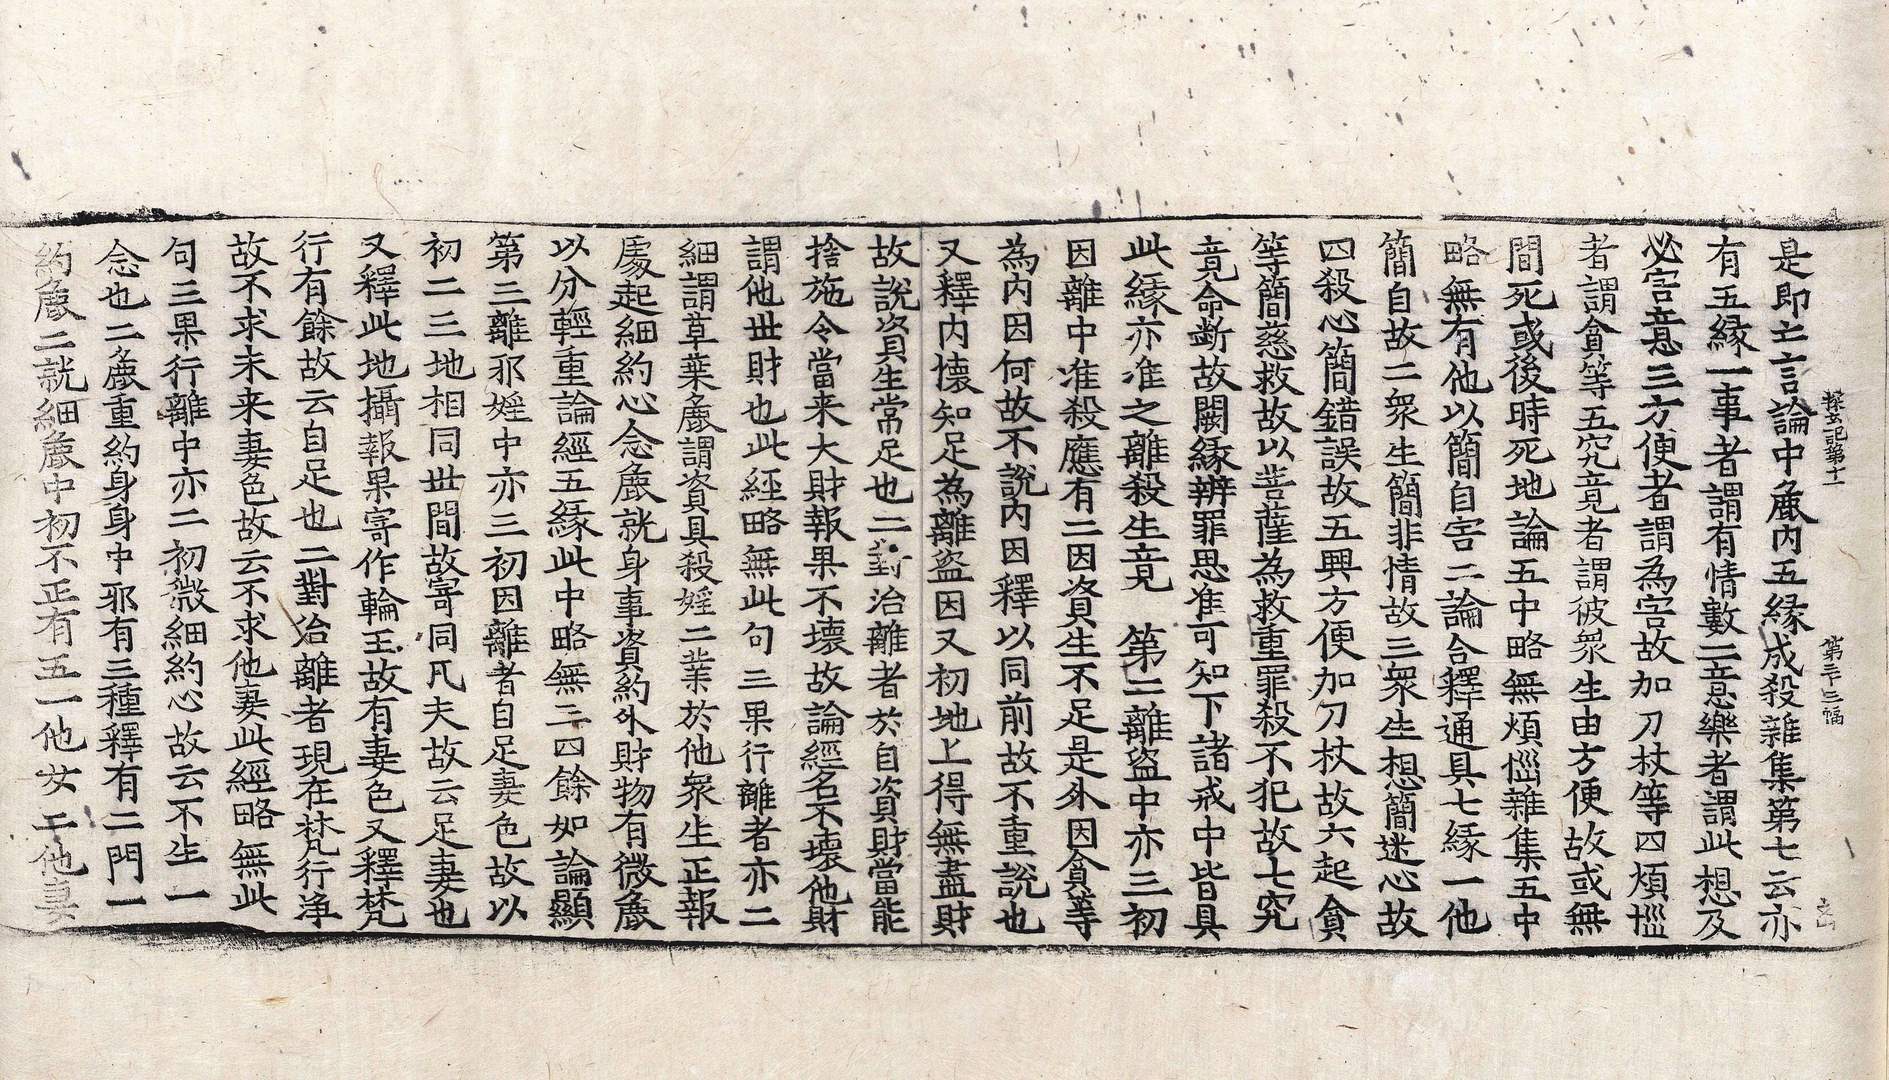 探玄記第十一 第三十三幅 立山
是即亡言論中麁內五緣成殺雜集第七云亦
有五緣一事者謂有情數二意樂者謂此想及
必害意三方便者謂為害故加刀杖等四煩惱
者謂貪等五究竟者謂彼衆生由方便故或無
間死或後時死地論五中略無煩惱雜集五中
略無有他以簡自害二論合釋通具七緣一他
簡自故二衆生簡非情故三衆生想簡迷心故
四殺心簡錯誤故五興方便加刀杖故六起貪
等簡慈救故以菩薩為救重罪殺不犯故七究
竟命斷故闕緣辨罪思准可知下諸戒中皆具
此緣亦准之離殺生竟 第二離盜中亦三初
因離中准殺應有二因資生不足是外因貪等
為內因何故不說內因釋以同前故不重說也
又釋內懷知足為離盜因又初地上得無盡財
故說資生常足也二對治離者於自資財當能
捨施令當来大財報果不壞故論經名不壞他財
謂他世財也此經略無此句三果行離者亦二
細謂草葉麁謂資具殺婬二業於他衆生正報
處起細約心念麁就身事資約外財物有微麁
以分輕重論經五緣此中略無三四餘如論顯
第三離邪婬中亦三初因離者自足妻色故以
初二三地相同世間故寄同凡夫故云足妻也
又釋此地攝報果寄作輪王故有妻色又釋梵
行有餘故云自足也二對治離者現在梵行淨
故不求未来妻色故云不求他妻此經略無此
句三果行離中亦二初微細約心故云不生一
念也二麁重約身身中邪有三種釋有二門一
約麁二就細麁中初不正有五一他女二他妻